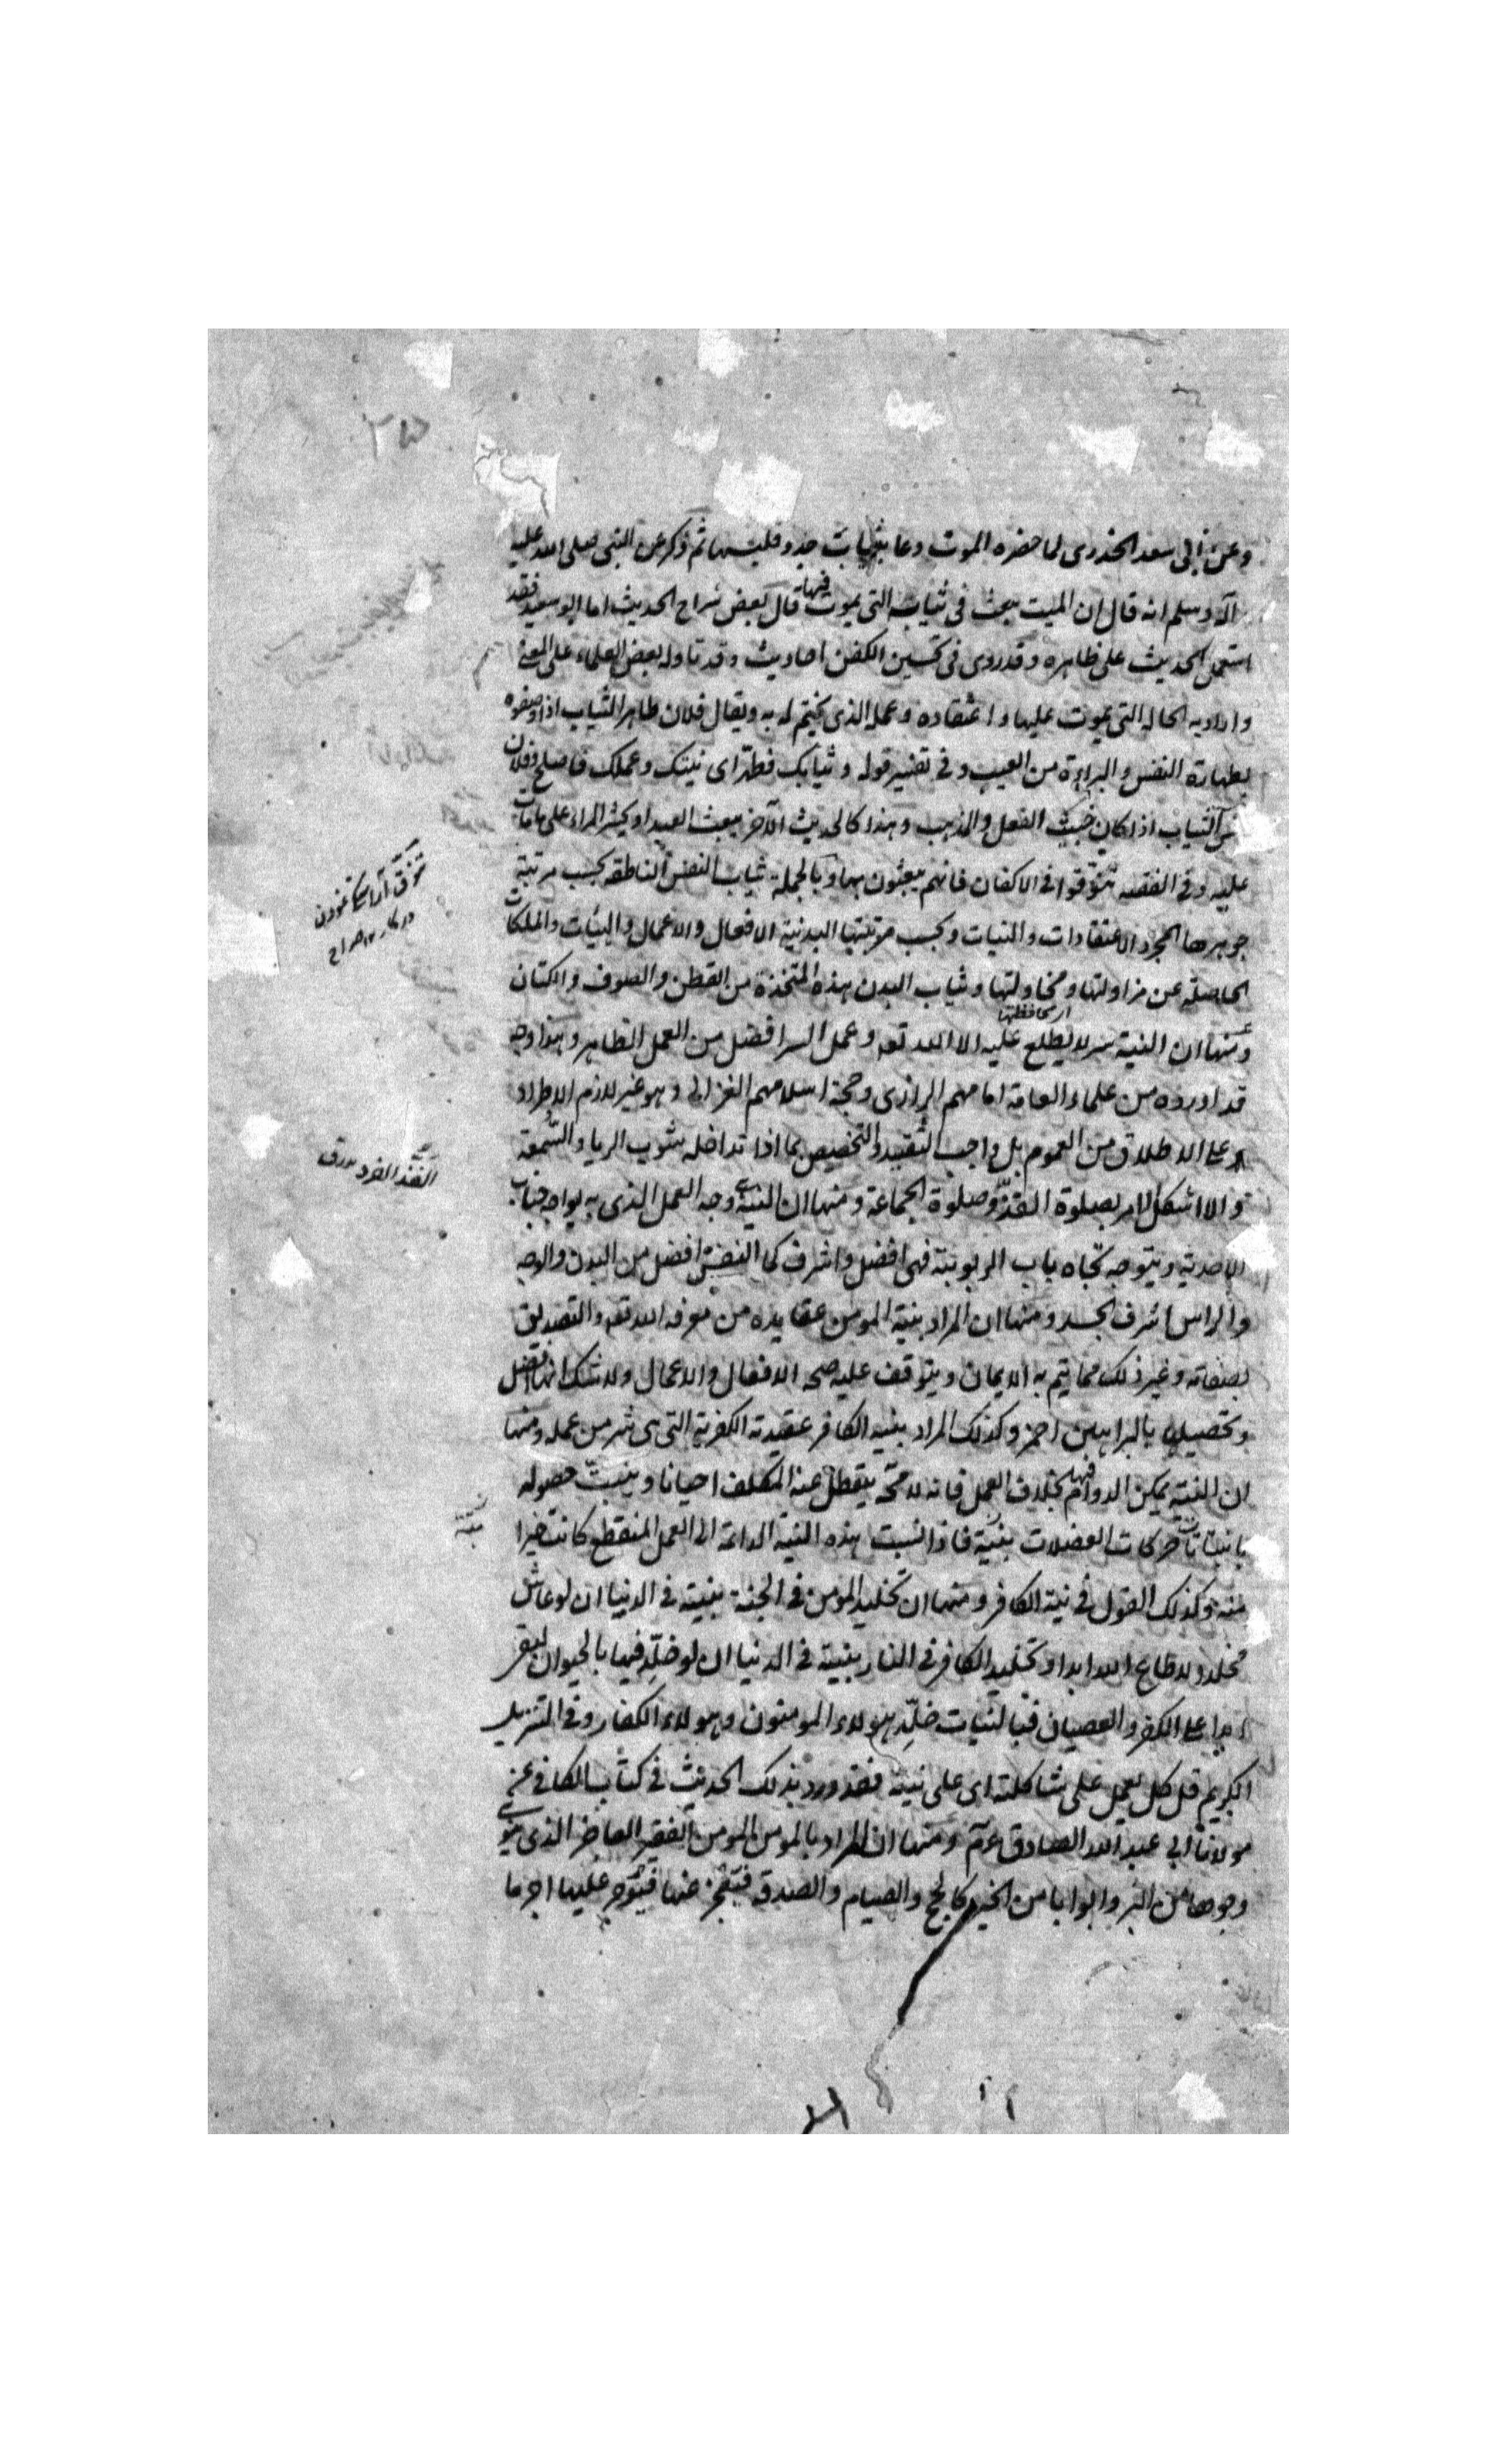 وعن ابى سعد الخدرى لما حضره الموت دعا بثياب جدد فلبسها ثم ذكر عن النبى صلى الله عليه
وآله وسلم انه قال ان الميت يبعث فى ثيابه التى يموت فيها قال بعض شراح الحديث اما ابو سعيد فقد
استعمل الحديث على ظاهره وقد روى فى تحسين الكفن احاديث وقد تاوله بعض العلماء على المعنى
واراد به الحالة التى يموت عليها واعتقاده وعمله الذى يختم له به ويقال فلان طاهر الثياب اذا وصفوه
بطهارة النفس والبراءة من العيب وفى تفسير قوله وثيابك فطهر اى نيتك وعملك فاصلح وفلان
دنس الثياب اذا كان خبيث الفعل والمذهب وهذا كالحديث الآخر يبعث العبد او يحشر المرء على ما مات
عليه وفى الفقيه تنوقوا فى الاكفان فانهم يبعثون بها وبالجملة ثياب النفس الناطقة بحسب مرتبة
جوهرها المجرد الاعتقادات والنيات وبحسب مرتبتها البدنية الافعال والاعمال والهيئات والملكات
الحاصلة عن مزاولتها ومحاولتها وثياب البدن هذه المتخذة من القطن والصوف والكتان
اى محافظتها
ومنها ان النية سر لا يطلع عليه الا الله تعه وعمل السر افضل من العمل الظاهر وهذا وجه
قد اورده من علماء العامة امامهم الرازى وحجة اسلامهم الغزالى وهو غير لازم الاطراد
على الاطلاق من العموم بل واجب التقييد والتخصيص بما اذا تداخله شوب الريا والسمعة
والا اشكل الامر بصلوة الفذ وصلوة الجماعة ومنها ان النية وجه العمل الذى به يواجه جناب
الاحدية ويتوجه تجاه باب الربوبية فهى افضل واشرف كما النفس افضل من البدن والوجه
والراس اشرف الجسد ومنها ان المراد بنية المومن عقايده من معرفة الله تعه والتصديق
بصفاته وغير ذلك مما يتم به الايمان ويتوقف عليه صحه الافعال والاعمال ولا شك انها افضل
وتحصيلها بالبراهين احمز وكذلك المراد بنية الكافر عقيدته الكفرية التى هى شر من عمله ومنها
ان النية يمكن الدوام فيها بخلاف العمل فانه لا محة يتعطل عنه المكلف احيانا وينبت حصوله
بانبتات حركات العضلات بنية فاذا نسبت هذه النية الدائمة الى العمل المنقطع كانت خيرا
منه وكذلك القول فى نية الكافر ومنها ان تخليد المومن فى الجنة بنيته فى الدنيا ان لو عاش
مخلدا لاطاع الله ابدا وتخليد الكافر فى النار بنيته فى الدنيا ان لو خلد فيها بالحيوان لبقر
ابدا على الكفر والعصيان فبالنيات خلد هولاء المومنون وهولاء الكفار وفى التنزيل
الكريم قل كل يعمل على شاكلته اى على نيته فقد ورد بذلك الحديث فى كتاب الكافى عن
مولانا ابى عبد الله الصادق عم ومنها ان المراد بالمومن المومن الفقير العاجز الذى ينوى
وجوها من البر وابوابا من الخير كالحج والصيام والصدقة فيعجز عنها فيوجر عليها اجر ما
تنوق آراستگى نمودن
در كار ۱۲ صراح
الفذ الفرد